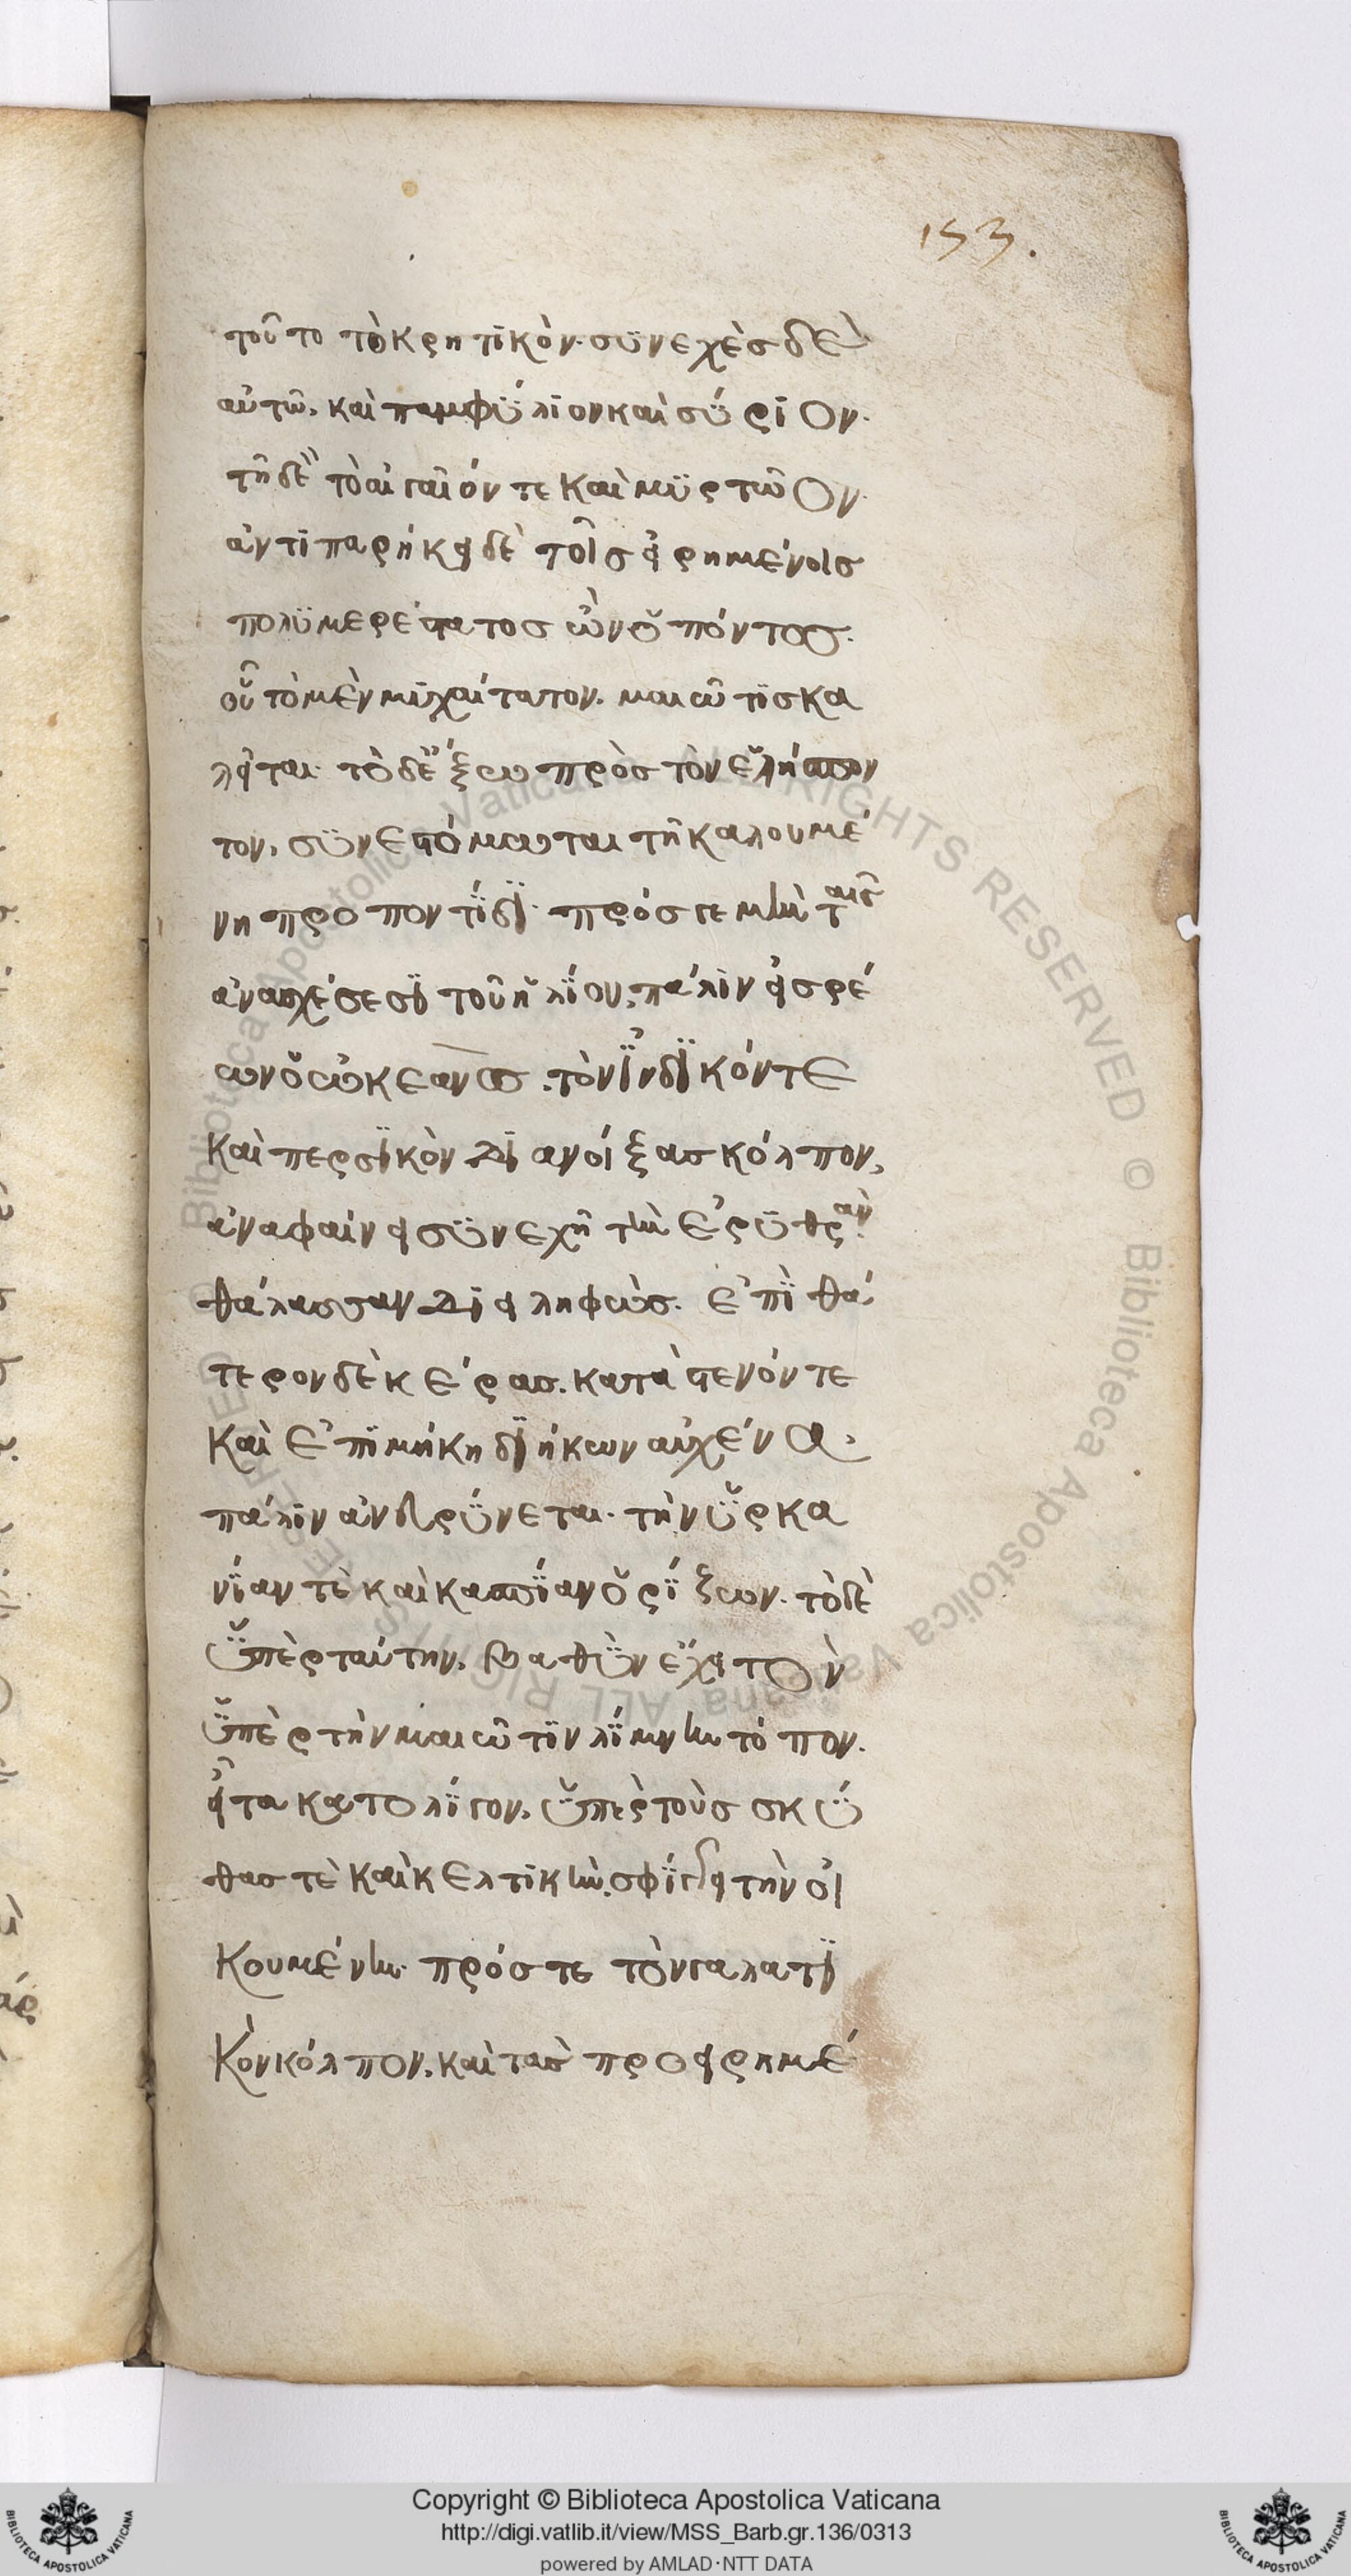 153.
τοῦτο τὸ κρητικὸν· συνεχὲς δὲ
αὐτῶ, καὶ παμφύλιον καὶ σύριον·
τῆ δὲ τὸ αἰγαῖόν τε καὶ μυρτῶον·
ἀντιπαρήκει δὲ τοῖς εἰρημένοις
πολυμερέστατος ὢν ὁ πόντος·
οὗ τὸ μὲν μυχαίτατον. μαιῶτις κα
λεῖται· τὸ δὲ ἔξω πρὸς τὸν ἑλήσπον
τον, συνεστόμωται τῆ καλουμέ
νη προποντίδι· πρός γε μὴν ταῖς
ἀνασχέσεσι τοῦ ἡλίου, πάλιν εἰσρέ
ων ὁ ὠκεανὸς. τὸν ἰνδικόν τε
καὶ περσικὸν διανοίξας κόλπον,
ἀναφαίνει συνεχῆ τὴν ἐρυθρὰν
θάλασσαν διειληφώς. ἐπὶ θά
τερον δὲ κέρας. κατὰ στενόν τε
καὶ ἐπιμήκη διήκων αὐχένα,
πάλιν ἀνδρύνεται· τὴν ὑρκα
νίαν τὲ καὶ κασπίαν ὁρίζων· τὸ δὲ
ὑπὲρ ταύτην, βαθὺν ἔχει τὸν
ὑπὲρ τὴν μαιῶτιν λίμνην τόπον.
εἶτα κατολίγον, ὑπὲρ τοὺς σκύ
θας τὲ καὶ κελτικὴν, σφίγγει τὴν οἰ
κουμένην· πρός τε τὸν γαλατι
κὸν κόλπον, καὶ τὰς προειρημέ
Copyright © Biblioteca Apostolica Vaticana
http://digi.vatlib.it/view/MSS_Barb.gr.136/0313
powered by AMLAD·NTT DATA